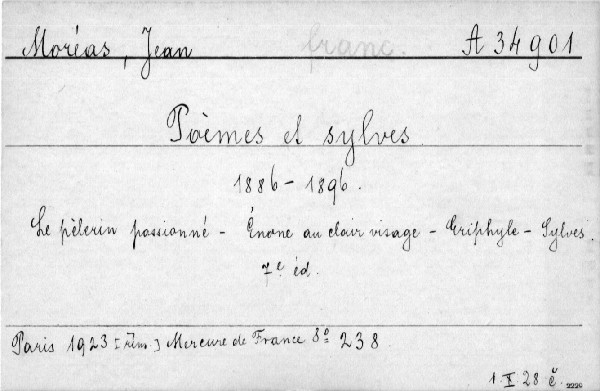 Moréas, Jean franc. A 34901
Poèmes et sylves
1886-1896.
Le pèlerin passionné - Énone au clair visage - Eriphyle - Sylves.
7e éd.
Paris 1923 [řím.] Mercure de France 8o 238
1.X.28 č. 2226